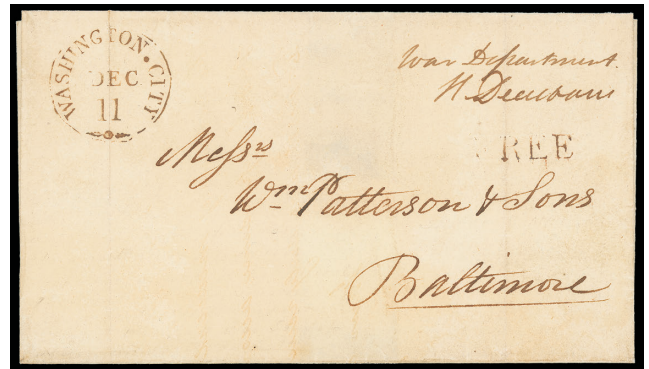 WASHINGTON • CITY
DEC
11
War Department
H Dearborn
REE
Messrs
Wm Patterson & Sons
Baltimore